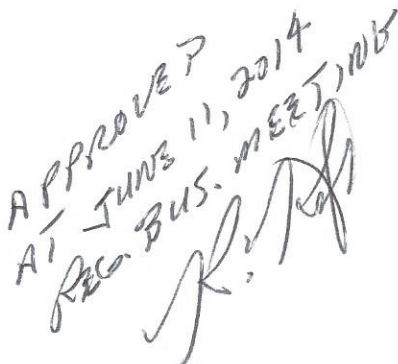 APPROVED
AT JUNE 11, 2014
REG. BUS. MEETING